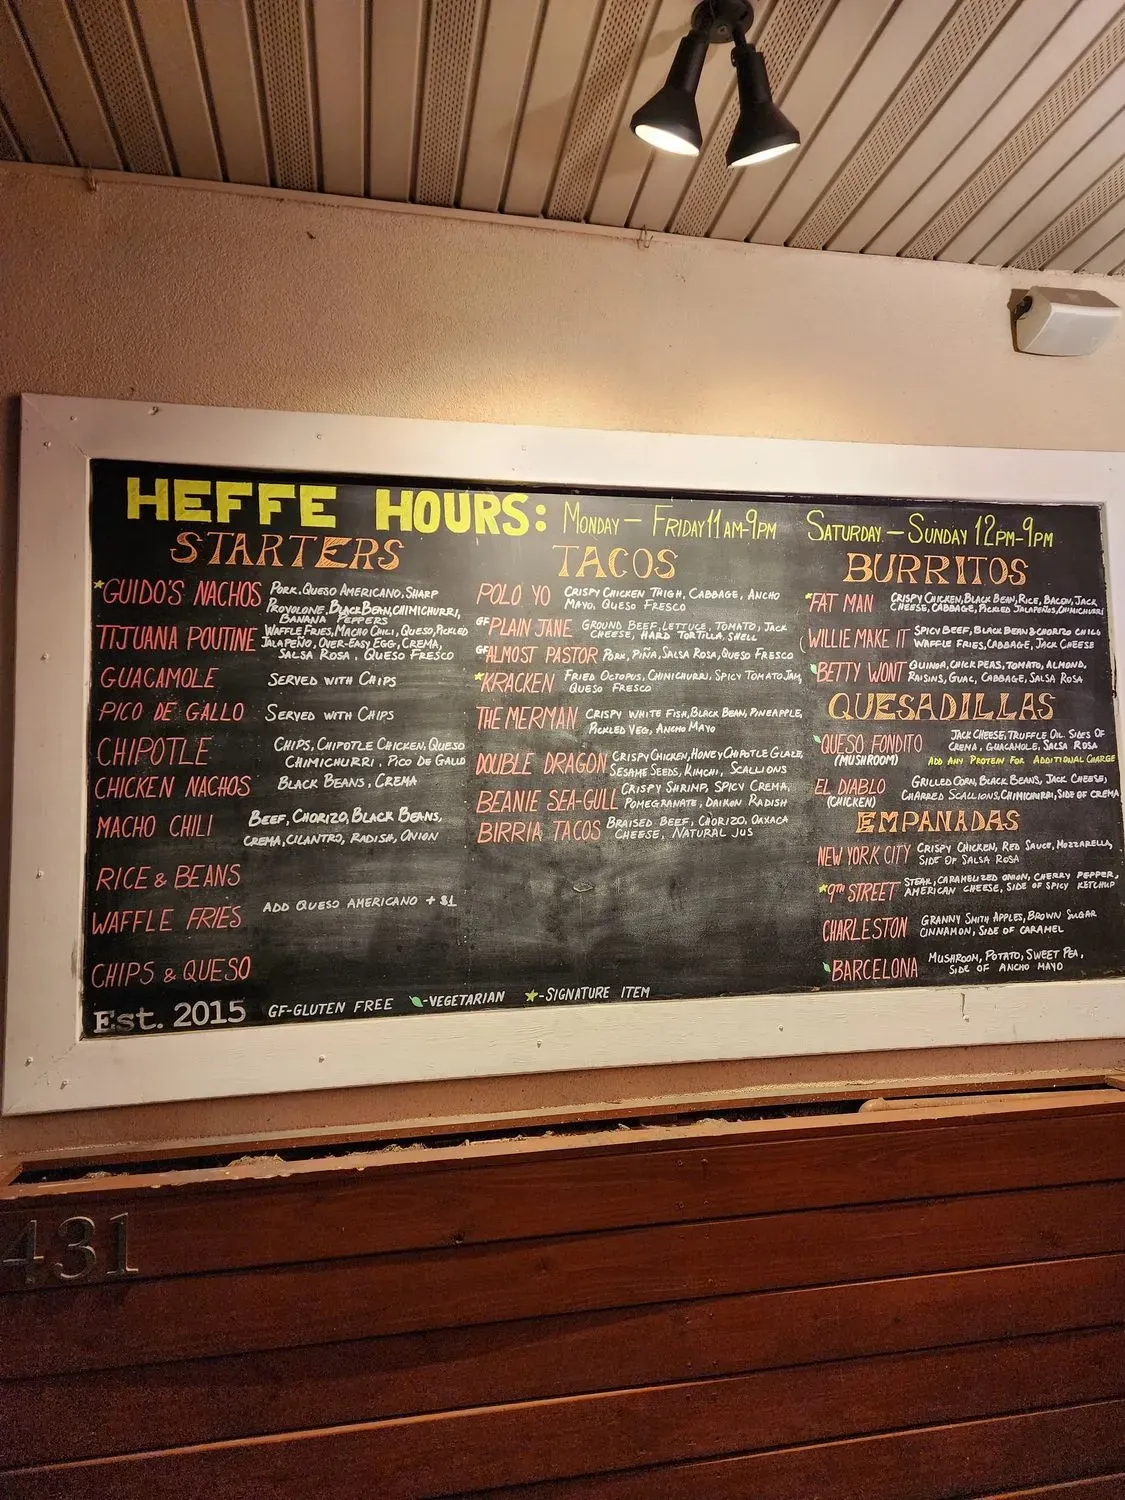 HEFFE HOURS: MONDAY – FRIDAY 11AM-9PM SATURDAY – SUNDAY 12PM-9PM
STARTERS
*GUIDO'S NACHOS PORK, QUESO AMERICANO, SHARP
PROVOLONE, BLACK BEAN, CHIMICHURRI,
BANANA PEPPERS
TIJUANA POUTINE WAFFLE FRIES, MACHO CHILI, QUESO, PICKLED
JALAPEÑO, OVER-EASY EGG, CREMA,
SALSA ROSA, QUESO FRESCO
GUACAMOLE SERVED WITH CHIPS
PICO DE GALLO SERVED WITH CHIPS
CHIPOTLE CHIPS, CHIPOTLE CHICKEN, QUESO
CHIMICHURRI, PICO DE GALLO
CHICKEN NACHOS BLACK BEANS, CREMA
MACHO CHILI BEEF, CHORIZO, BLACK BEANS,
CREMA, CILANTRO, RADISH, ONION
RICE & BEANS
WAFFLE FRIES ADD QUESO AMERICANO + $1
CHIPS & QUESO
TACOS
POLO YO CRISPY CHICKEN THIGH, CABBAGE, ANCHO
MAYO, QUESO FRESCO
GF PLAIN JANE GROUND BEEF, LETTUCE, TOMATO, JACK
CHEESE, HARD TORTILLA SHELL
GF ALMOST PASTOR PORK, PIÑA, SALSA ROSA, QUESO FRESCO
*KRACKEN FRIED OCTOPUS, CHIMICHURRI, SPICY TOMATO JAM,
QUESO FRESCO
THE MERMAN CRISPY WHITE FISH, BLACK BEAN, PINEAPPLE,
PICKLED VEG, ANCHO MAYO
DOUBLE DRAGON CRISPY CHICKEN, HONEY CHIPOTLE GLAZE,
SESAME SEEDS, KIMCHI, SCALLIONS
BEANIE SEA-GULL CRISPY SHRIMP, SPICY CREMA,
POMEGRANATE, DAIKON RADISH
BIRRIA TACOS BRAISED BEEF, CHORIZO, OAXACA
CHEESE, NATURAL JUS
BURRITOS
*FAT MAN CRISPY CHICKEN, BLACK BEAN, RICE, BACON, JACK
CHEESE, CABBAGE, PICKLED JALAPEÑOS, CHIMICHURRI
WILLIE MAKE IT SPICY BEEF, BLACK BEAN & CHORIZO CHILI
WAFFLE FRIES, CABBAGE, JACK CHEESE
BETTY WONT QUINOA, CHICKPEAS, TOMATO, ALMOND,
RAISINS, GUAC, CABBAGE, SALSA ROSA
QUESADILLAS
QUESO FONDITO JACK CHEESE, TRUFFLE OIL. SIDES OF
CREMA, GUACAMOLE, SALSA ROSA
(MUSHROOM) ADD ANY PROTEIN FOR ADDITIONAL CHARGE
EL DIABLO GRILLED CORN, BLACK BEANS, JACK CHEESE,
(CHICKEN) CHARRED SCALLIONS, CHIMICHURRI, SIDE OF CREMA
EMPANADAS
NEW YORK CITY CRISPY CHICKEN, RED SAUCE, MOZZARELLA,
SIDE OF SALSA ROSA
*9TH STREET STEAK, CARAMELIZED ONION, CHERRY PEPPER,
AMERICAN CHEESE, SIDE OF SPICY KETCHUP
CHARLESTON GRANNY SMITH APPLES, BROWN SUGAR
CINNAMON, SIDE OF CARAMEL
BARCELONA MUSHROOM, POTATO, SWEET PEA,
SIDE OF ANCHO MAYO
Est. 2015 GF-GLUTEN FREE -VEGETARIAN ★-SIGNATURE ITEM
431